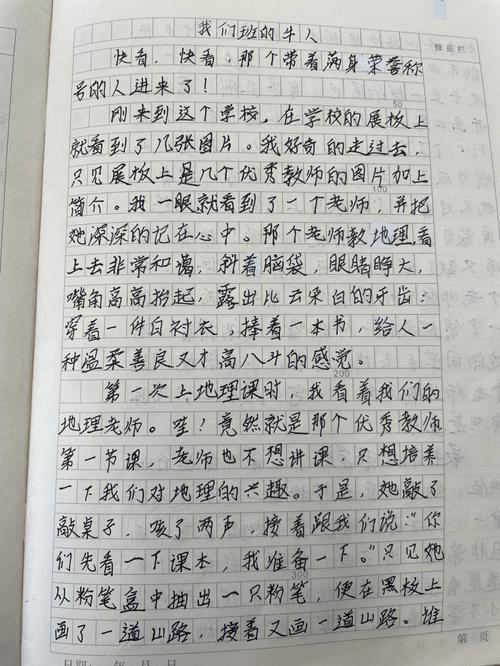 我们班的牛人
修正栏
快看，快看，那个带着满身荣誉称
号的人进来了！
刚来到这个学校，在学校的展板上
50
就看到了几张图片。我好奇的走过去，
只见展板上是几个优秀教师的图片加上
100
简介。我一眼就看到了一个老师，并把
她深深的记在心中。那个老师教地理，看
上去非常和谐，斜着脑袋，眼睛睁大，
嘴角高高抬起，露出比云采白的牙齿；
穿着一件白衬衣，捧着一本书，给人一
种温柔善良又才高八斗的感觉。
200
第一次上地理课时，我看着我们的
地理老师。哇！竟然就是那个优秀教师
第一节课，老师也不想讲课，只想培养
一下我们对地理的兴趣。于是，她敲了
敲桌子，咳了两声，接着跟我们说：“你
们先看一下课本，我准备一下。”只见她
300
从粉笔盒中抽出一只粉笔，便在黑板上
画了一道山路，接着又画一道山路。谁
日期： 年 月 日
第 页